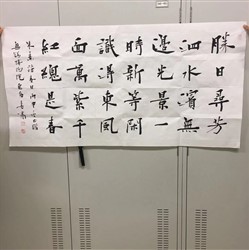 勝日尋芳
泗水濱無
邊光景一
時新等閒
識得東風
面萬紫千
紅總是春
朱熹詩春日